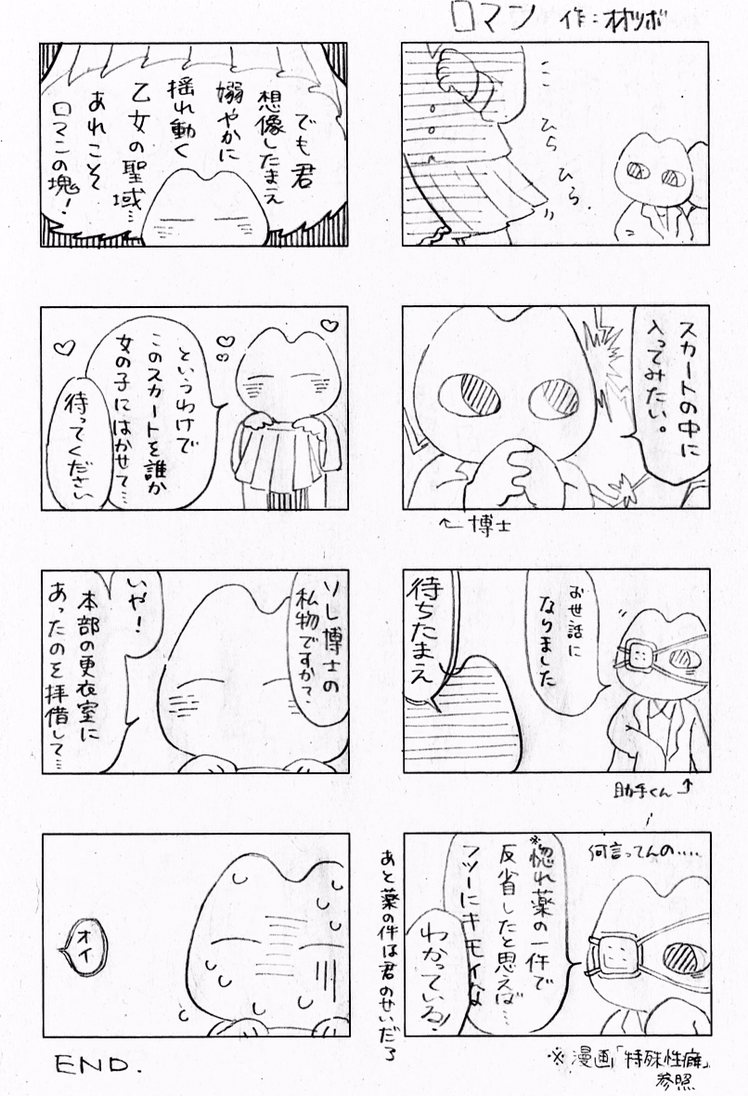 ロマン 作:材ツボ
ひら
ひら
スカートの中に
入ってみたい。
←博士
お世話に
なりました
待ちたまえ
助手くん↑
何言ってんの‥‥‥
※惚れ薬の一件で
反省したと思えば…
フツーにキモイな
わかっている!
あと薬の件は君のせいだろ
※漫画「特殊性癖」
参照
でも君
想像したまえ
嫋やかに
揺れ動く
乙女の聖域…
あれこそ
ロマンの塊!
というわけで
このスカートを誰か
女の子にはかせて…
待ってください
ソレ博士の
私物ですか?
いや!
本部の更衣室に
あったのを拝借して…
オイ
END.